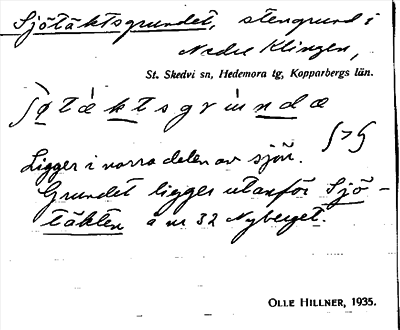 Sjötäktsgrundet, stengrund i
Nedre Klingen,
St. Skedvi sn, Hedemora tg, Kopparbergs län.
Ligger i norra delen av sjön.
Grundet ligger utanför Sjö-
täkten å nr 32 Nyberget.
OLLE HILLNER, 1935.